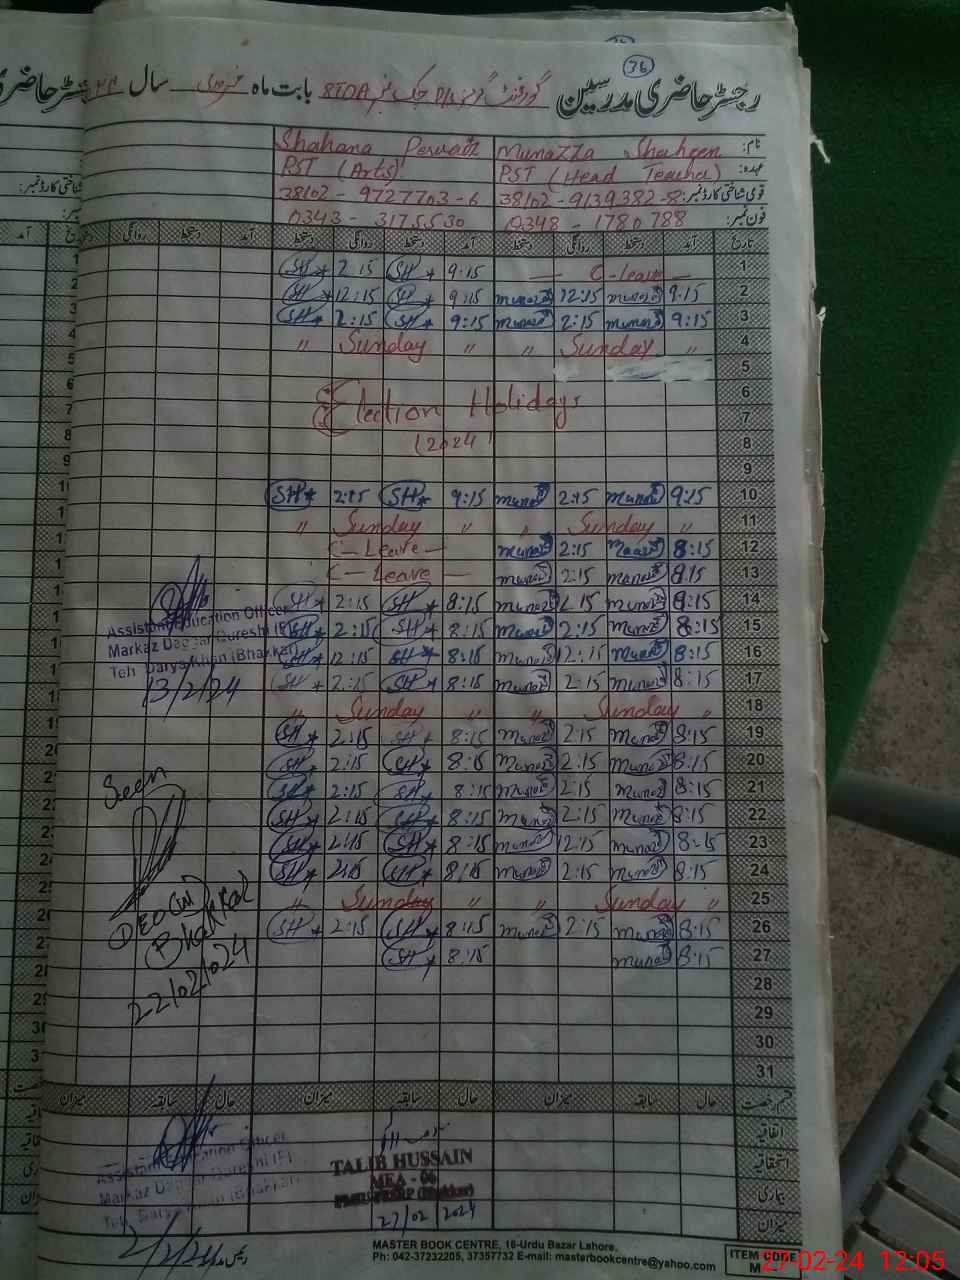 36
رجسٹر حاضری مدرسین
بابت ماہ فروری سال
نام: Munazza Shaheen Shahana
عہدہ: PST (Head Teacher) PST (Arts)
قومی شناختی کارڈ نمبر: 38102-9139382-8 38102-9727703-6
فون نمبر: 0348-1780788 0343-3175530
تاریخ آمد دستخط روانگی دستخط آمد دستخط روانگی دستخط آمد دستخط روانگی
1 — C-leave — 9:15 SH 2:15 SH
2 9:15 Munazza 12:15 Munazza 9:15 SH 12:15 SH
3 9:15 Munazza 2:15 Munazza 9:15 SH 2:15 SH
4 " Sunday " " Sunday "
5
6
7 Election Holidays
8 (2024)
9
10 9:15 Munazza 2:15 Munazza 9:15 SH 2:15 SH
11 " Sunday " " Sunday "
12 8:15 Munazza 2:15 Munazza C-Leave —
13 8:15 Munazza 2:15 Munazza C-Leave —
14 8:15 Munazza 2:15 Munazza 8:15 SH 2:15 SH
15 8:15 Munazza 2:15 Munazza 8:15 SH 2:15 SH
16 8:15 Munazza 12:15 Munazza 8:15 SH 12:15 SH
17 8:15 Munazza 2:15 Munazza 8:15 SH 2:15 SH
18 " Sunday " " Sunday "
19 8:15 Munazza 2:15 Munazza 8:15 SH 2:15 SH
20 8:15 Munazza 2:15 Munazza 8:15 SH 2:15 SH
21 8:15 Munazza 2:15 Munazza 8:15 SH 2:15 SH
22 8:15 Munazza 2:15 Munazza 8:15 SH 2:15 SH
23 8:15 Munazza 12:15 Munazza 8:15 SH 2:15 SH
24 8:15 Munazza 2:15 Munazza 8:15 SH 2:15 SH
25 " Sunday " " Sunday "
26 8:15 Munazza 2:15 Munazza 8:15 SH 2:15 SH
27 8:15 Munazza 8:15 SH
28
29
30
31
Assistant Education Officer
Markaz Daggar Qureshi (F)
Teh Darya Khan (Bhakkar)
13/2/24
Seen
Bhakkar
22/02/024
قسم رخصت حال سابقہ میزان حال سابقہ میزان حال سابقہ میزان
اتفاقیہ
استحقاقیہ
بیماری
میزان
Assistant Education Officer
Markaz Daggar Qureshi (F)
Teh Darya Khan (Bhakkar)
2/2/24
TALIB HUSSAIN
MEA - 06
27/02/2024
MASTER BOOK CENTRE, 16-Urdu Bazar Lahore.
Ph: 042-37232205, 37357732 E-mail: masterbookcentre@yahoo.com
ITEM CODE
27-02-24 12:05